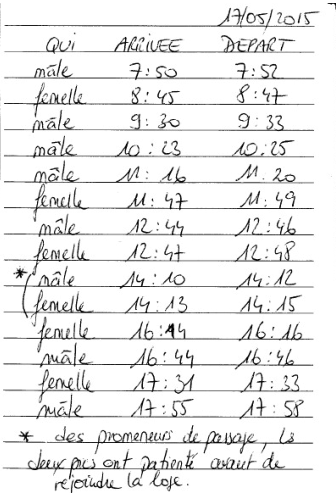 17/05/2015
QUI ARRIVEE DEPART
mâle 7:50 7:52
femelle 8:45 8:47
mâle 9:30 9:33
mâle 10:23 10:25
mâle 11:16 11.20
femelle 11:47 11:49
mâle 12:44 12:46
femelle 12:47 12:48
* mâle 14:10 14:12
femelle 14:13 14:15
femelle 16:14 16:16
mâle 16:44 16:46
femelle 17:31 17:33
mâle 17:55 17:58
* des promeneurs de passage, les
deux pics ont patienté avant de
rejoindre la loge.